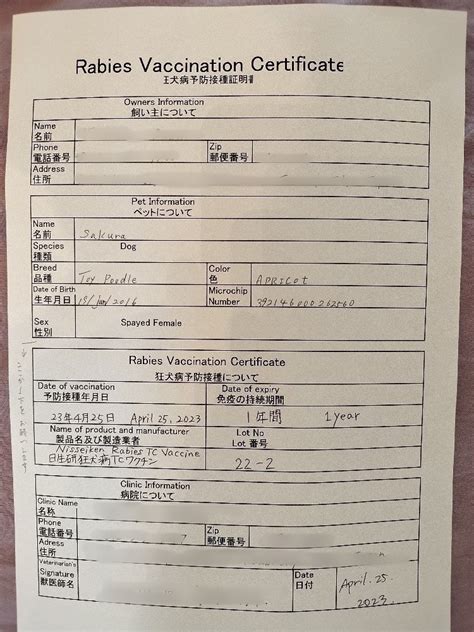 Rabies Vaccination Certificate
狂犬病予防接種証明書
Owners Information
飼い主について
Name
名前
Phone
電話番号
Zip
郵便番号
Address
住所
Pet Information
ペットについて
Name
名前
Sakura
Species
種類
Dog
Breed
品種
Toy Poodle
Color
色
APRICOT
Date of Birth
生年月日
Microchip
Number
Sex
性別
Spayed Female
Rabies Vaccination Certificate
狂犬病予防接種について
Date of vaccination
予防接種年月日
Date of expiry
免疫の持続期間
23年4月25日 April 25, 2023
1年間 1year
Name of product and manufacturer
製品名及び製造業者
Lot No
Lot 番号
Nisseiken Rabies TC Vaccine
日生研狂犬病TCワクチン
22-2
Clinic Information
病院について
Clinic Name
名称
Phone
電話番号
Zip
郵便番号
Adress
住所
Veterinarian's
Signature
獣医師名
Date
日付
April. 25.
2023.